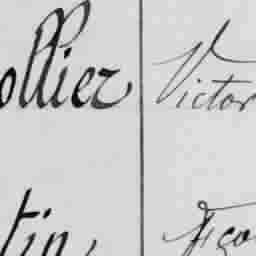 ollier Victor
tin,